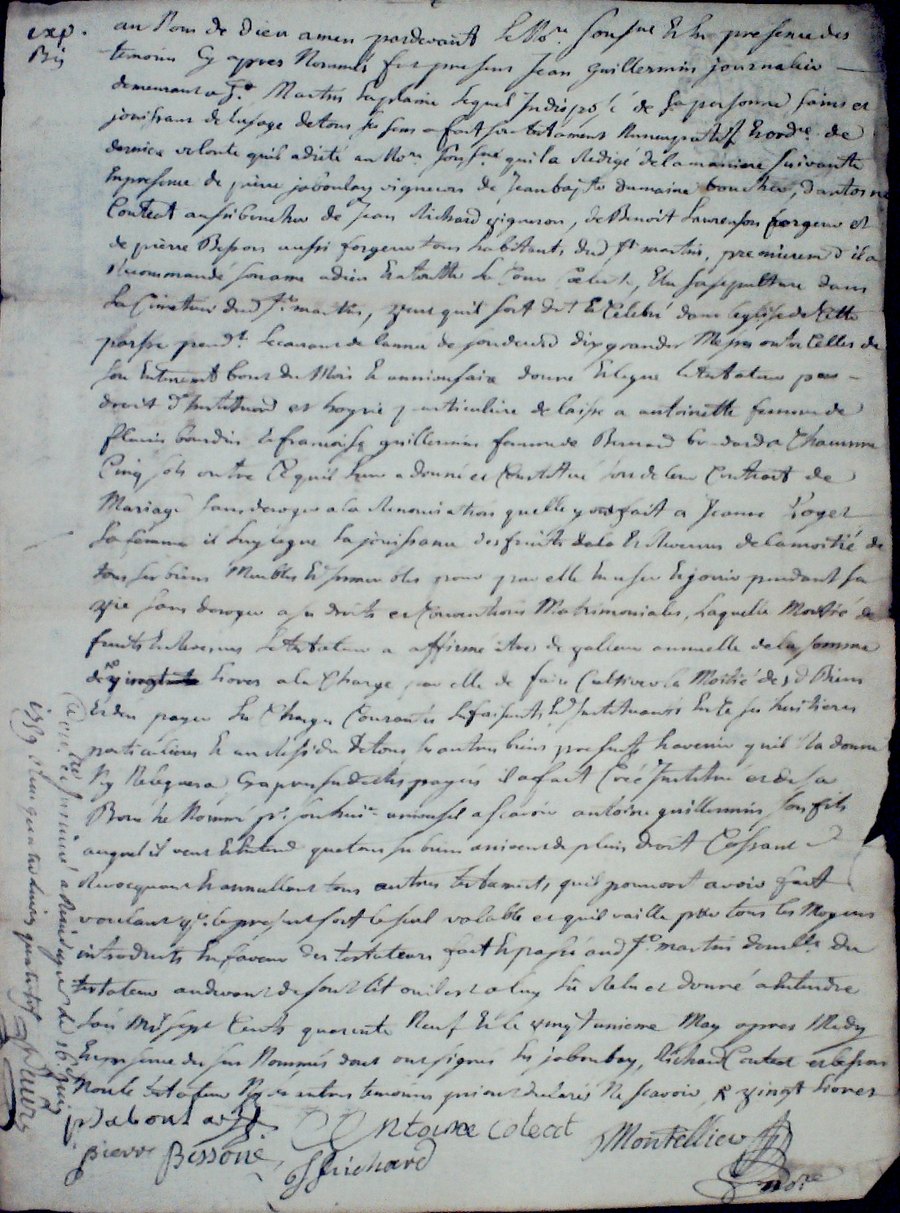 exp.
Bis
au Nom de Dieu amen pardevant le No.re sousne Et En presence des
temoins Cy apres Nommés fut present Jean guillermin journalier
demeurant a St Martin Laplaine lequel Indisposé de sa personne sains et
jouissant de lusage de tous ses sens a fait son testament Nuncupatif Et ordre de
derniere volonte quil a dicté au No.re sousne qui la Redigé de la maniere suivante
En presence de pierre jaboulay vigneron de Jean baptte dumaine boucher, dantoine
Coutect aussi boucher de Jean Richard vigneron, de Benoit Laurenson forgeur et
de pierre Besson aussi forgeur tous habitants dud St martin, premierement il a
Recommandé son ame a dieu Et a toutte La Cour Celeste, Elu sa sepulture dans
Le Cimetiere dud St martin, veut quil soit dit Et Celebré dans leglise de Cette
paroisse pendt. le courant de lannee de son deced dix grandes Messes outre Celles de
son Enterrement bout du Mois Et anniversaire donne Et legue le testateur par
droit dInstitution et hoyrie particuliere delaisse a antoinette femme de
fleuris bourdin Et francoise guillermin femme de Bernard
Cinq sols outre Ce quil leur a donné et Constitué lors de leur Contract de
Mariage sans deroger a la Renonciation quelle y ont fait a Jeanne Royet
Sa femme il luy legue La jouissance des fruits Et Revenus de la moitié de
tous ses biens Meubles Et Immeubles pour par elle En user Et jouir pendant sa
vie sans deroger a ses droits et Conventions Matrimoniales, Laquelle Moitié de
fruits Et Revenus le testateur a affirmé etre de valleur annuelle de la somme
de vingt livres a la Charge par elle de faire Cultiver la Moitié desd Biens
Et den payer les Charges Courantes
particulieres Et au Residu de tous les autres biens presents Et avenir quil Na donné
Ny Leguera Cy apres sus dettes payés il a fait Créé Institué et de sa
Bouche Nommé pr. son heritier universel a scavoir antoine guillermin son fils
auquel il veut Et entend que tous ses biens arrivent de plein droit Cassant
Revocquant Et annullant tous autres testaments quil pourroit avoir fait
voulant que le present soit le seul valable et quil vaille par tous les Moyens
introduits En faveur des testateurs fait Et passé aud St martin domlle du
testateur audevant de son lit ouil est a luy Lu Relu et donné a entendre
Lan Mil sept Cents quarente Neuf Et le vingt unieme May apres Midy
En presence des sus Nommés dont ont signés Les jaboulay, Richard Coutect et besson
Non le testateur Ny les autres temoins pour declarés Ne scavoir, vingt livres
p jaboulay
Antoine Cotect
Montellier
pierre Bessone
J Richard
No.re